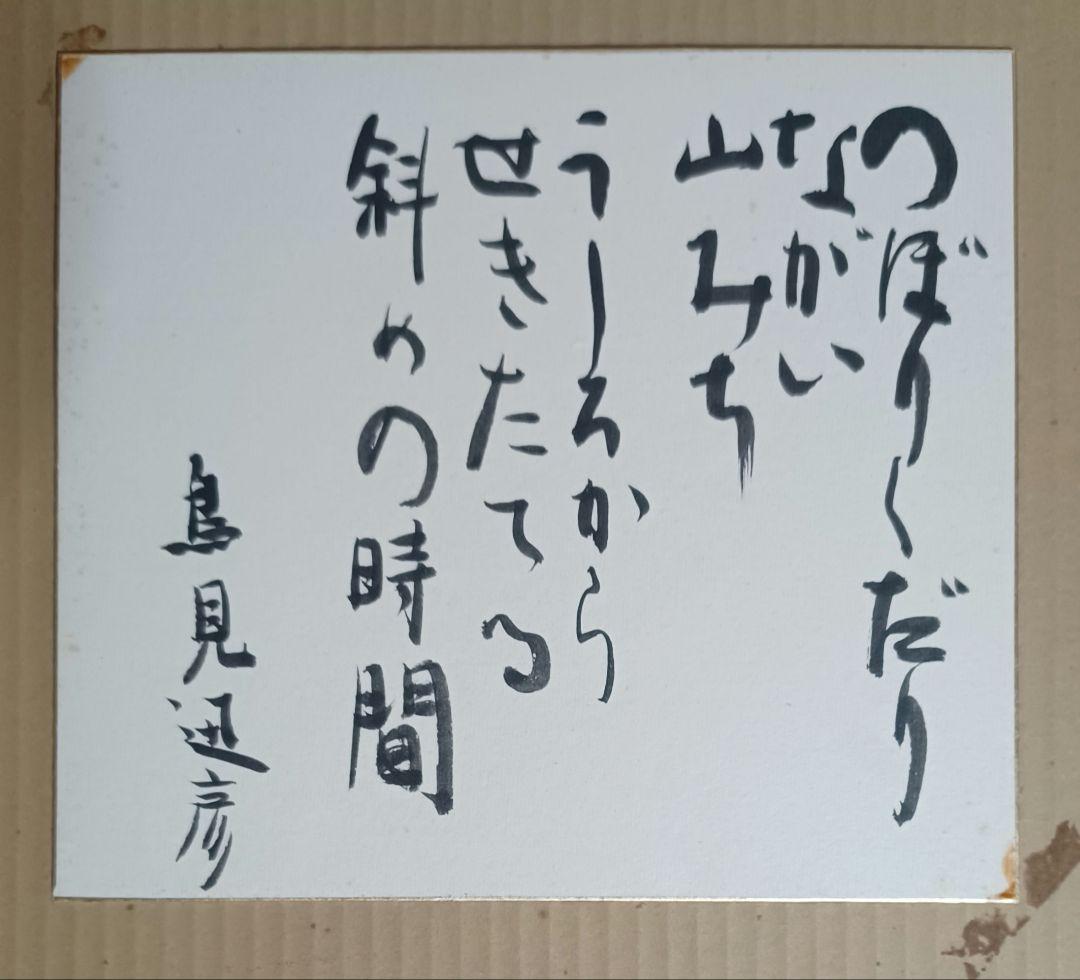 のぼりくだり
ながい
山みち
うしろから
せきたてる
斜めの時間
鳥見迅彦